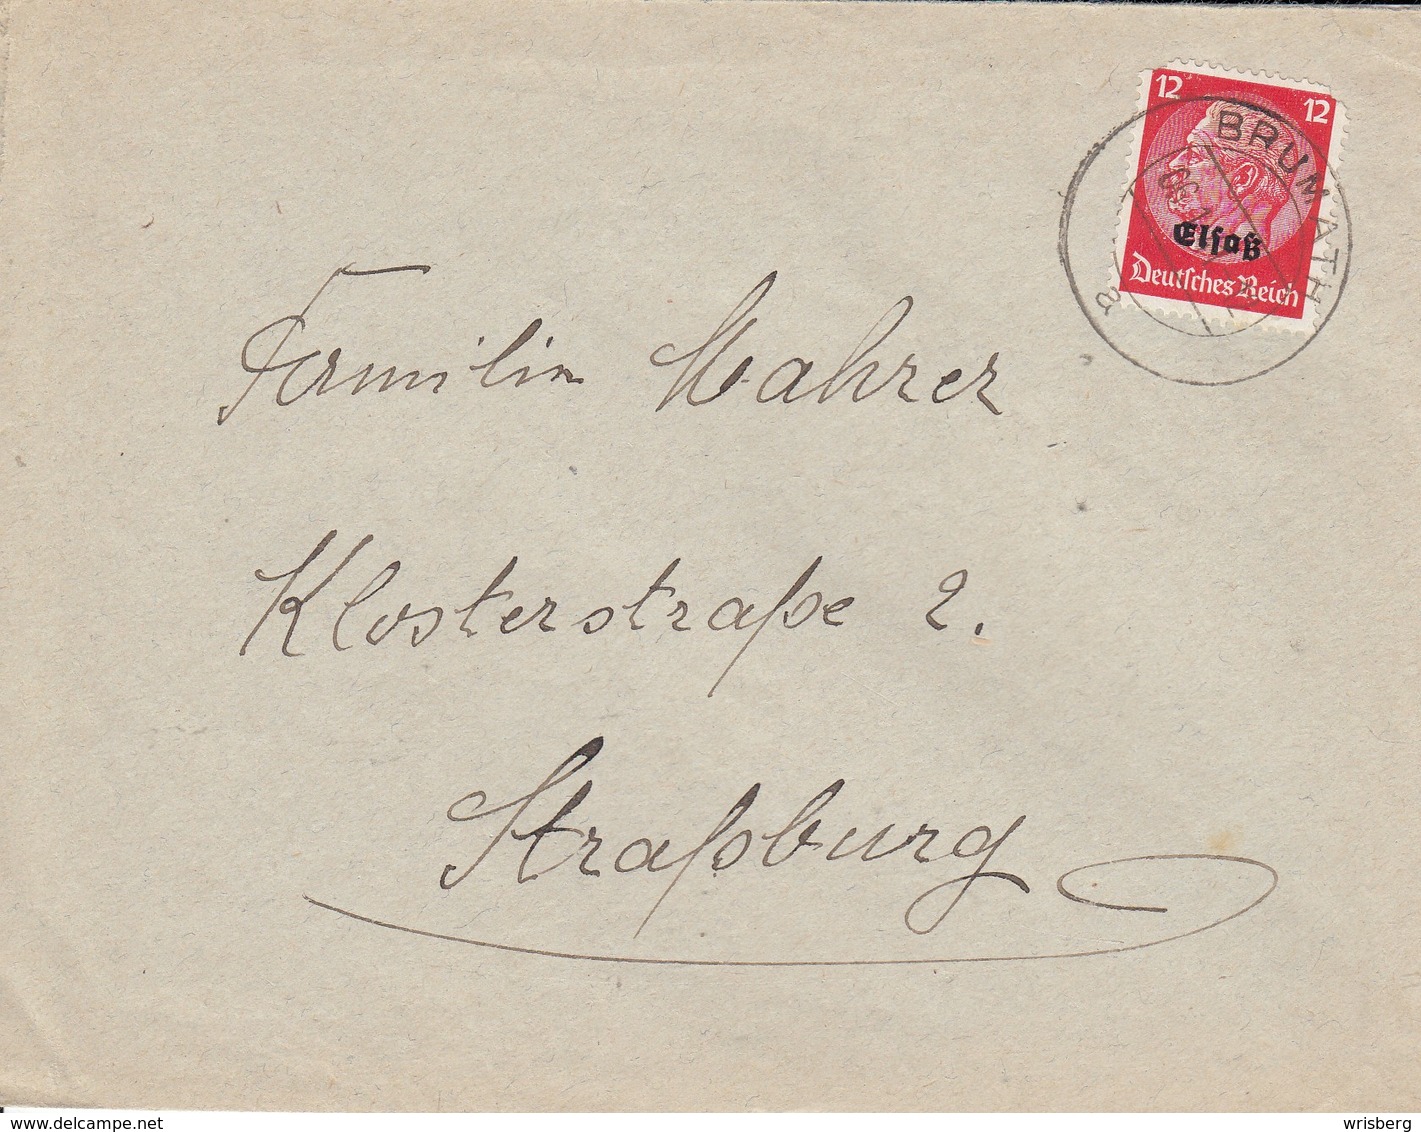 12 12
BRUMATH
Elsaß
Deutsches Reich
a
Familie Mahrer
Klosterstraße 2.
Straßburg
www.delcampe.net
wrisberg